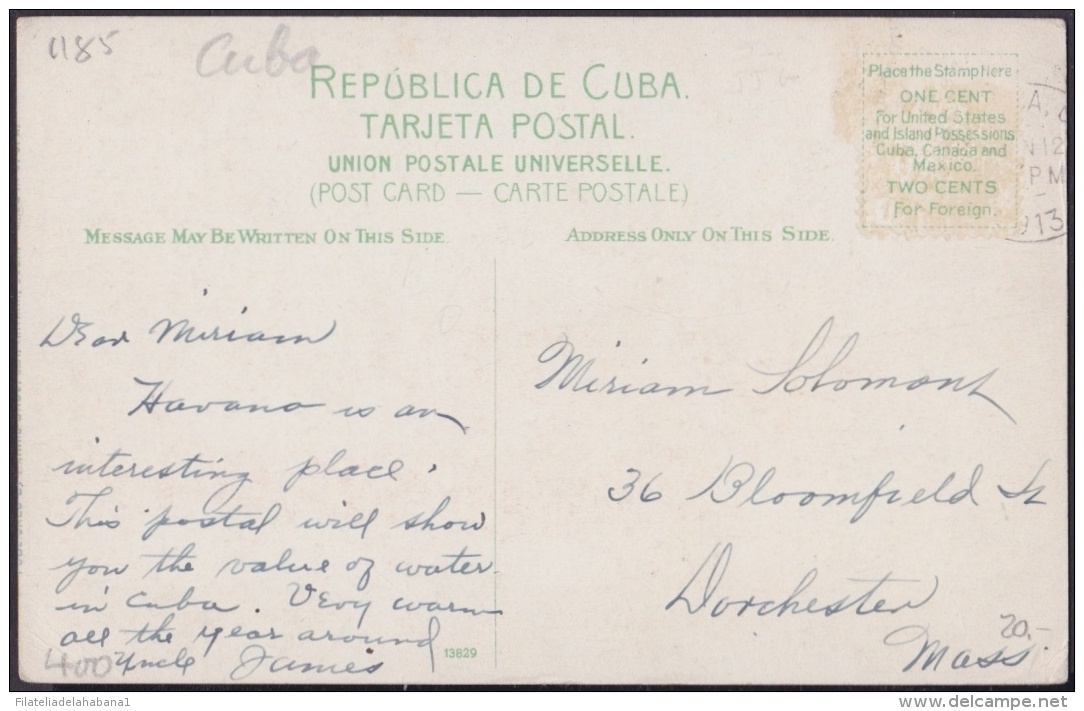 1185
Cuba
REPÚBLICA DE CUBA.
TARJETA POSTAL.
UNION POSTALE UNIVERSELLE.
(POST CARD — CARTE POSTALE)
Place the Stamp Here
ONE CENT
For United States
and Island Possessions
Cuba, Canada and
Mexico.
TWO CENTS
For Foreign.
A,
N 12
PM
1913
MESSAGE MAY BE WRITTEN ON THIS SIDE.
ADDRESS ONLY ON THIS SIDE.
Dear Miriam
Havana is an
interesting place.
This postal will show
you the value of water
in Cuba. Very warm
all the year around
Uncle James
400
13829
Miriam Solomont
36 Bloomfield St
Dorchester
Mass.
20.-
Filateliadelahabana1
delcampe.net